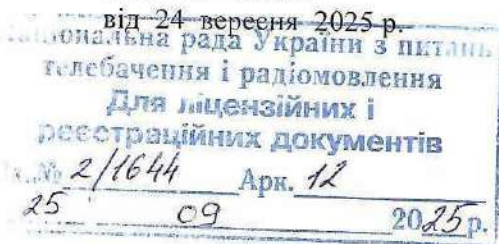 від 24 вересня 2025 р.
Національна рада України з питань
телебачення і радіомовлення
Для ліцензійних і
реєстраційних документів
Вх.№ 2/1644 Арк. 12
25 09 2025 р.